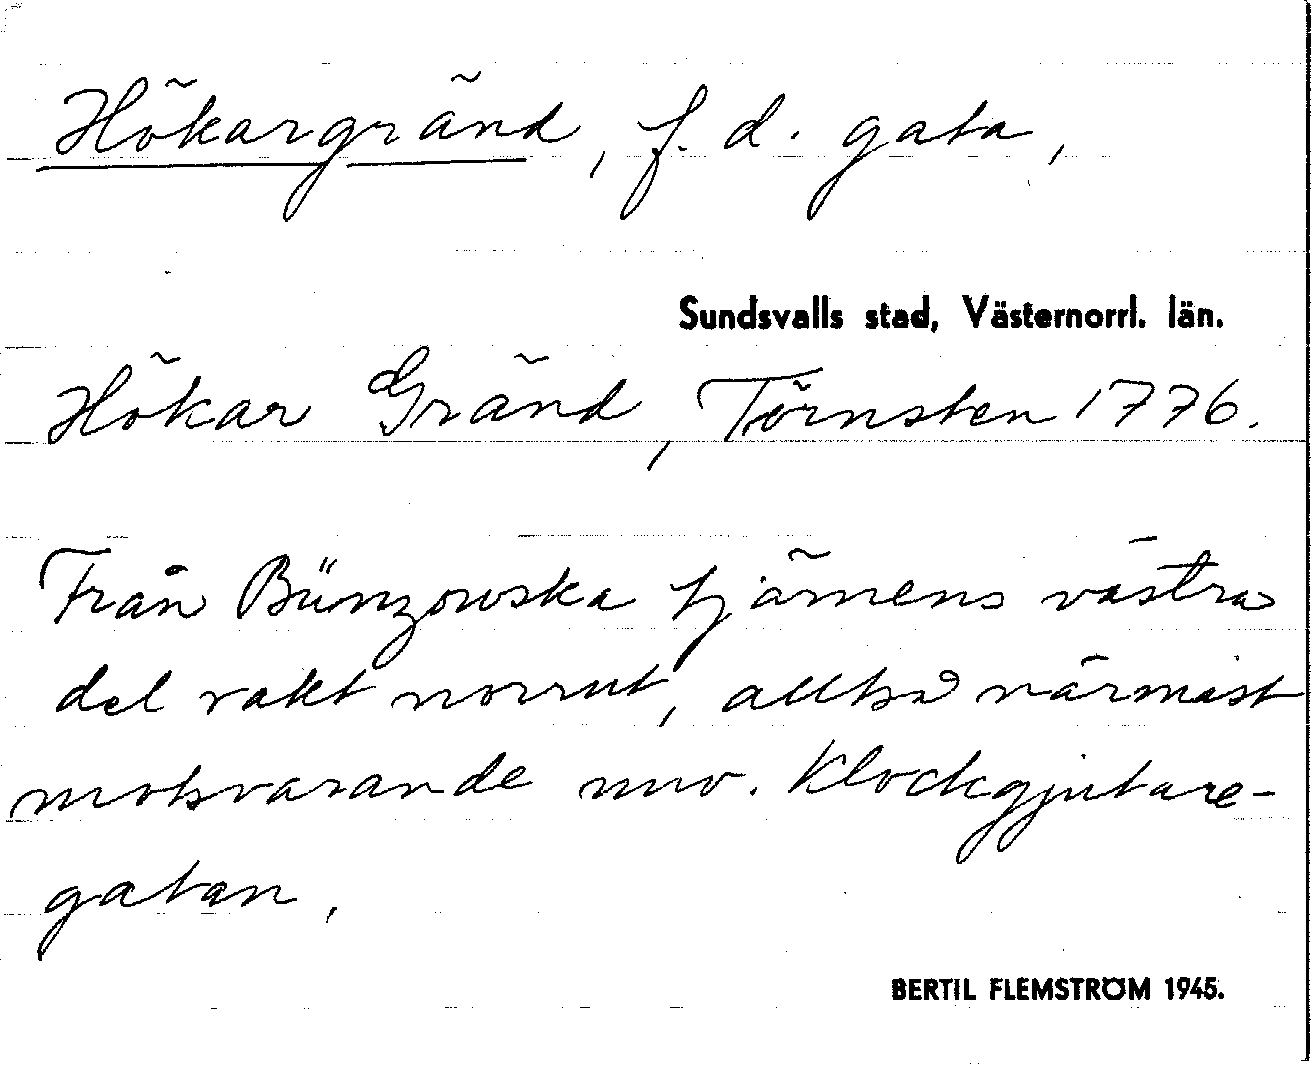 Hökargränd, f. d. gata,
Sundsvalls stad, Västernorrl. län.
Hökar Gränd, Törnsten 1776.
Från Bünzowska tjärnens västra
del rakt norrut, alltså närmast
motsvarande nuv. Klockgjutare-
gatan.
BERTIL FLEMSTRÖM 1945.